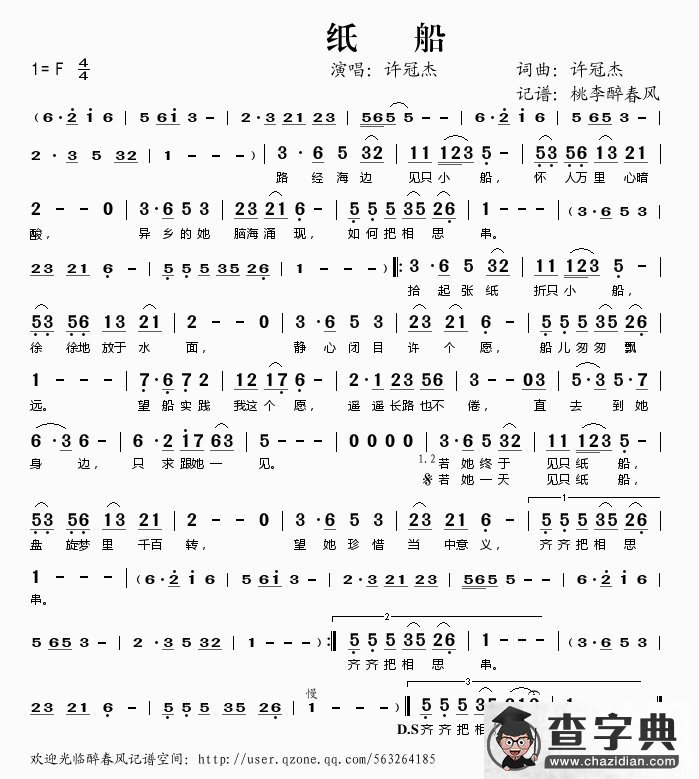 纸 船
1= F 4/4 演唱：许冠杰 词曲：许冠杰
记谱：桃李醉春风
( 6 · 2 i 6 | 5 6i 3 - | 2 · 3 21 23 | 565 5 - - | 6 · 2 i 6 | 5 65 3 - |
2 · 3 5 32 | 1 - - - ) | 3 · 6 5 32 | 11 123 5 - | 53 56 13 21 |
路 经 海 边 见只 小 船， 怀 人万 里 心暗
2 - - 0 | 3 · 6 5 3 | 23 21 6 - | 5 5 5 35 26 | 1 - - - | (3 · 6 5 3 |
酸， 异 乡 的 她 脑海 涌 现， 如 何 把 相 思 串。
23 21 6 - | 5 5 5 35 26 | 1 - - ) ‖: 3 · 6 5 32 | 11 123 5 - |
拾 起 张 纸 折只 小 船，
53 56 13 21 | 2 - - 0 | 3 · 6 5 3 | 23 21 6 - | 5 5 5 35 26 |
徐 徐地 放于 水 面， 静 心 闭 目 许 个 愿， 船 儿 匆 匆 飘
1 - - - | 7 · 6 7 2 | 22 17 6 - | 2 · 1 23 56 | 3 - - 03 | 5 · 3 5 · 7 |
远。 望 船 实 践 我这 个 愿， 遥 遥 长路 也不 倦， 直 去 到 她
6 · 3 6 - | 6 · 2 17 63 | 5 - - - | 0 0 0 0 | 3 · 6 5 32 | 11 123 5 - |
身 边， 只 求 跟她 一 见。 1.2 若 她 终 于 见只 纸 船，
若 她 一 天 见只 纸 船，
53 56 13 21 | 2 - - 0 | 3 · 6 5 3 | 23 21 6 - | 1 5 5 5 35 26 |
盘 旋梦 里 千百 转， 望 她 珍 惜 当 中意 义， 齐 齐 把 相 思
1 - - - | ( 6 · 2 i 6 | 5 6i 3 - | 2 · 3 21 23 | 565 5 - - | 6 · 2 i 6 |
串。
5 65 3 - | 2 · 3 5 32 | 1 - - - ) :‖ 2 5 5 5 35 26 | 1 - - - | (3 · 6 5 3 |
齐 齐 把 相 思 串。
23 21 6 - | 5 5 5 35 26 | 慢 1 - - - ) ‖ 3 5 5 5 35
D.S 齐 齐 把 相
查字典
www.chazidian.com
欢迎光临醉春风记谱空间：http://user.qzone.qq.com/563264185